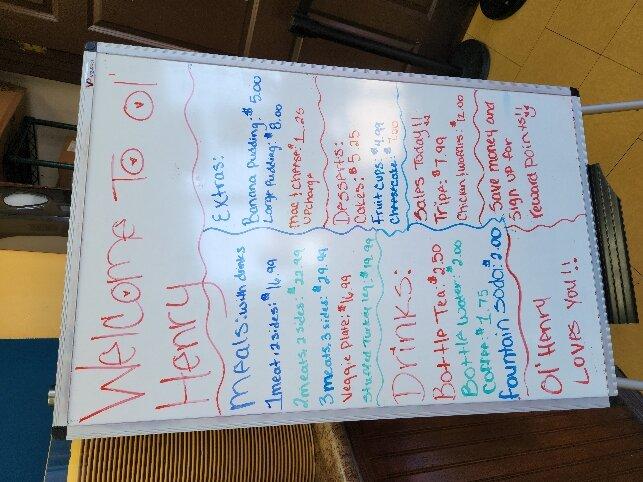 WELCOME TO Ol'
HENRY
Meals with drinks
1 meat, 2 sides: $16.99
2 meats, 2 sides: $22.99
3 meats, 3 sides: $29.99
Veggie Plate: $16.99
Stuffed Turkey Leg: $19.99
Drinks:
Bottle Tea: $2.50
Bottle Water: $2.00
Coffee: $1.75
fountain Soda: 2.00
Ol' HENRY
LOVES YOU!!
Extras:
Banana Pudding: $5.00
Large Pudding: $8.00
Mac & Cheese: 1.25
upcharge
Desserts:
Cakes: $5.25
Fruit Cups: $4.99
Cheesecake: $7.00
Sales Today!!
Tripe: $7.99
Chicken & Waffles: $12.00
Save money and
Sign up for
reward points!!